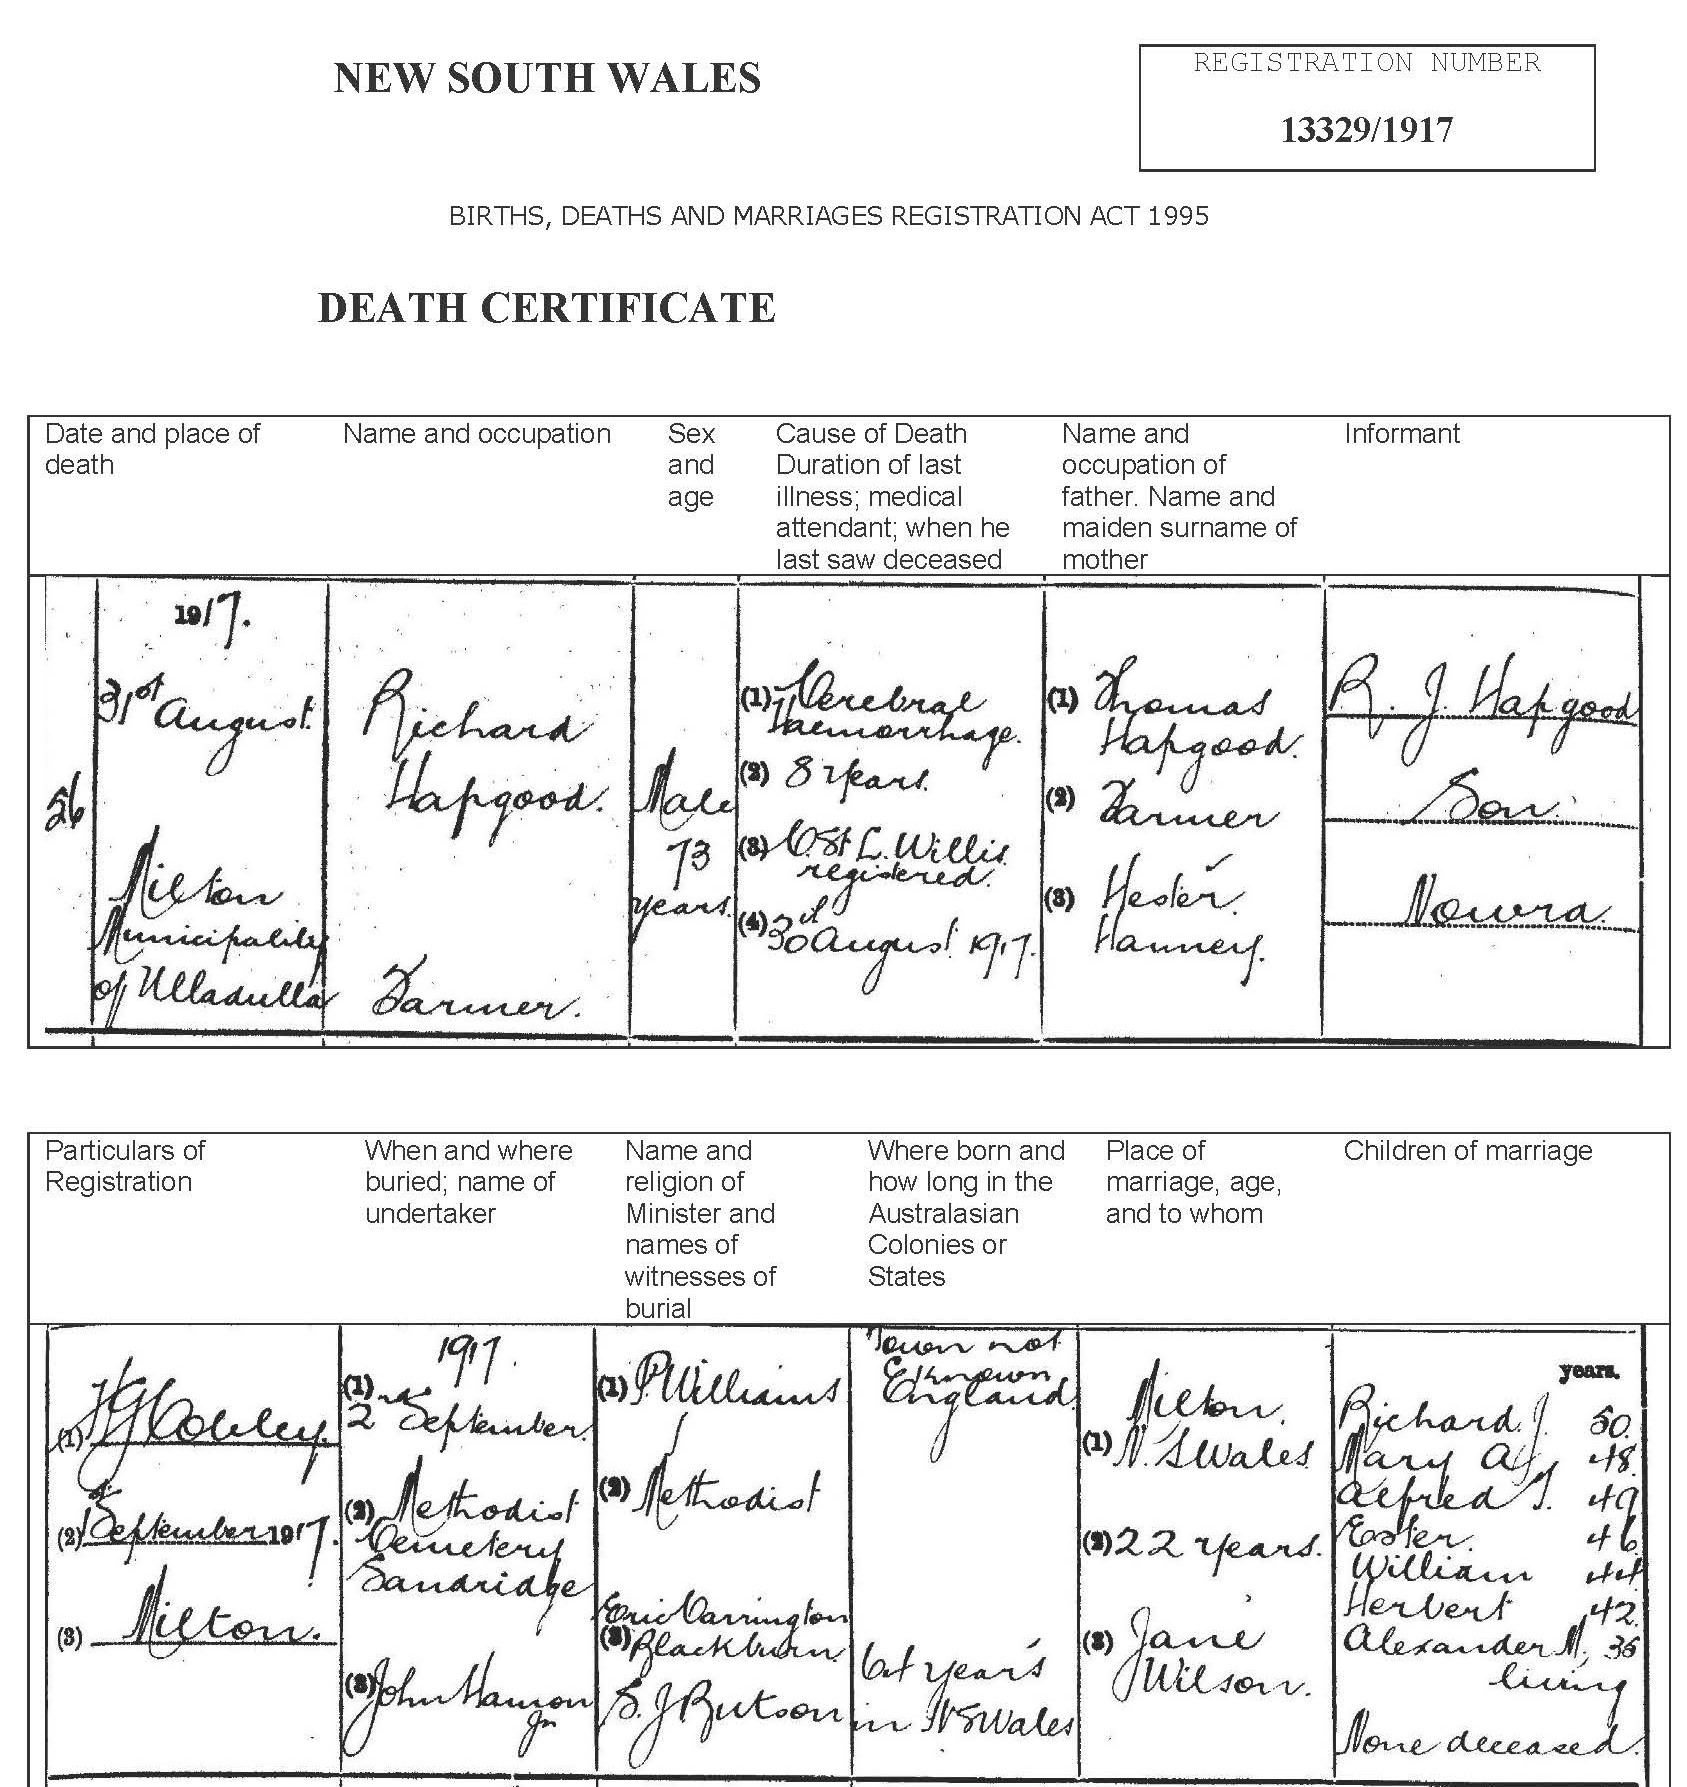 NEW SOUTH WALES
REGISTRATION NUMBER
13329/1917
BIRTHS, DEATHS AND MARRIAGES REGISTRATION ACT 1995
DEATH CERTIFICATE
Date and place of
death
Name and occupation
Sex
and
age
Cause of Death
Duration of last
illness; medical
attendant; when he
last saw deceased
Name and
occupation of
father. Name and
maiden surname of
mother
Informant
56
1917.
31st August.
Milton
Municipality
of Ulladulla
Richard
Hapgood.
Farmer.
Male
73
years.
(1) Cerebral
Haemorrhage.
(2) 8 years.
(3) C. St L. Willis
registered.
(4) 30th August 1917.
(1) Thomas
Hapgood.
(2) Farmer
(3) Hester.
Hanney.
R. J. Hapgood
Son.
Nowra.
Particulars of
Registration
When and where
buried; name of
undertaker
Name and
religion of
Minister and
names of
witnesses of
burial
Where born and
how long in the
Australasian
Colonies or
States
Place of
marriage, age,
and to whom
Children of marriage
(1) Cobley.
(2) 1st September 1917.
(3) Milton.
1917.
(1)
2nd September.
(2) Methodist
Cemetery
Sandridge
(3) John Hamon
Jn
(1) P. Williams
(2) Methodist
Eric Carrington
(3) Blackburn.
S. J. Rutson
Town not
known
England.
64 years
in N S Wales
Milton.
(1) N. S Wales
(2) 22 years.
(3) Jane
Wilson.
years.
Richard J. 50.
Mary A. J 48.
Alfred T. 49
Ester. 46
William 44
Herbert 42
Alexander M, 36
living
None deceased.